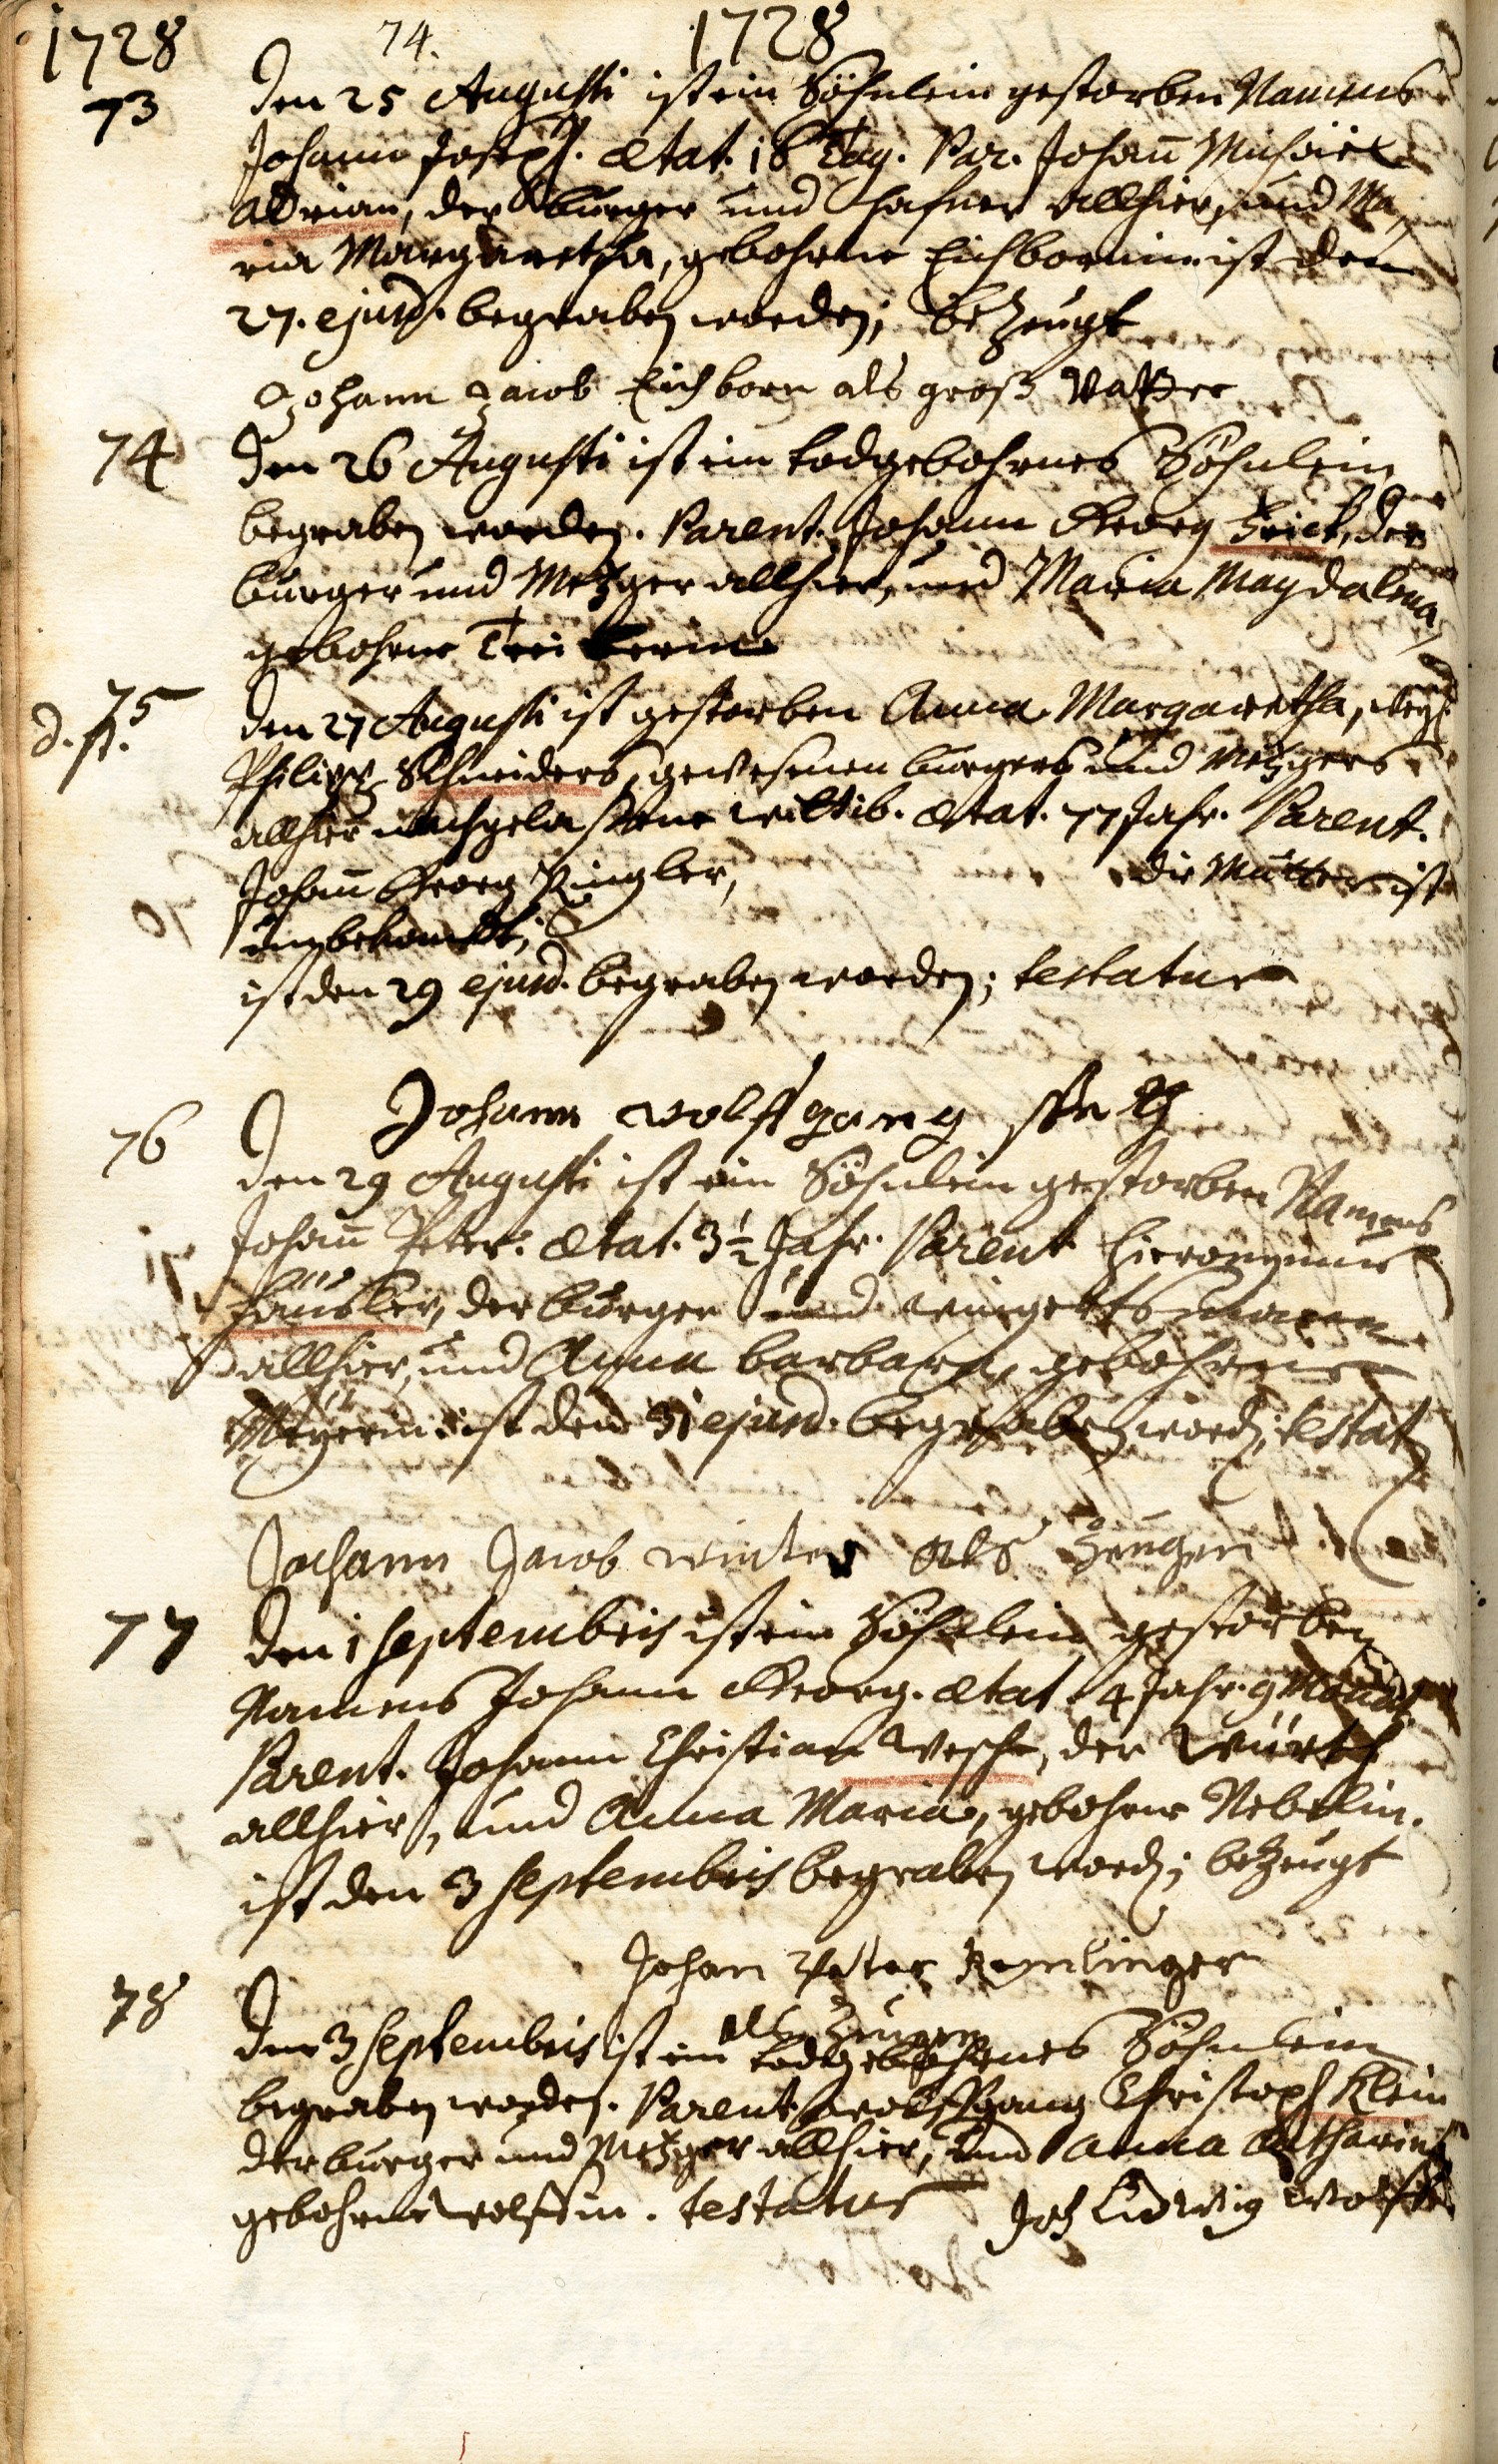 1728 74. 1728
73 Den 25 Augusti ist ein Söhnlein gestorben Namens
Johann Joseph. ætat. 18 Tag. Par. Johañ Michael
Adrian, der burger und Hafner allhier, und Ma
ria Margaretha, gebohrne Eichbornin ist den
27. ejusd. begraben worden; bezeugt
Johann Jacob Eichborn als groß Vatter
74 Den 26 Augusti ist ein todgebohrnes Söhnlein
begraben worden. Parent. Johann Georg Frick, der
burger und Metzger allhier, und Maria Magdalena,
gebohrne
75 Den 27 Augusti ist gestorben Anna Margaretha, weyl.
d. st.
Philipp Schneiders, gewesenen burgers und Metzgers
allhier nachgelaßene wittib. ætat. 77 Jahr. Parent.
Johañ Georg Ringler, die Mutter ist
unbekandt;
ist den 29 ejusd. begraben worden; testatur
Johann wolffgang
76 Den 29 Augusti ist ein Söhnlein gestorben Namens
Johañ Peter. ætat. 3½ Jahr. Parent Hieronymus
Häusler, der burger und
allhier, und Anna barbara, gebohrne
Meyerin ist den 31 ejusd. begraben word; testat
Johann Jacob winter als Zeugen
77 Den 1 Septembris ist ein Söhnlein gestorben
Namens Johann Georg. ætat. 4 Jahr. 9 Monat
Parent. Johann Christian Wesche, der Würth
allhier, und Anna Maria, gebohrne Nebelin.
ist den 3 Septembris begraben word; bezeugt
Johan Peter Remlinger
als Zeugen
78 Den 3 Septembris ist ein todtgebohrnes Söhnlein
begraben worden. Parent. wolffgang Christoph Klein
der burger und Metzger allhier, und Anna Catharina
gebohrne wolffin. testatur Joh Ludwig Wolff